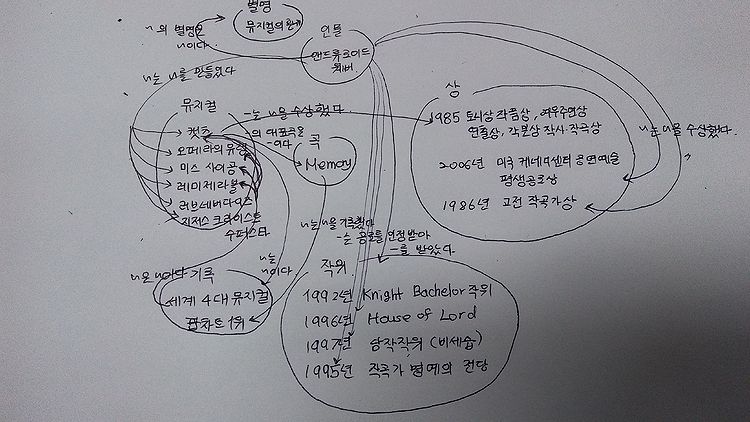 별명
뮤지컬의 황제
~의 별명은
~이다.
인물
앤드류로이드
웨버
~는 ~를 만들었다
뮤지컬
캣츠
오페라의 유령
미스 사이공
레미제라블
러브네버다이즈
지저스 크라이스트
수퍼스타
~는 ~을 수상했다.
의 대표곡은
~이다
곡
Memory
상
1985 토니상 작품상, 여우주연상
연출상, 각본상 작사·작곡상
2006년 미국 케네디센터 공연예술
평생공로상
1986년 고전 작곡가상
~는 ~을 수상했다.
~는 ~을 기록했다
~는 공로를 인정받아
~를 받았다.
~은 ~이다
기록
~는
~이다.
세계 4대 뮤지컬
팝차트 1위
작위
1992년 Knight Bachelor 작위
1996년 House of Lord
1997년 남작작위 (비세습)
1995년 작곡가 명예의 전당